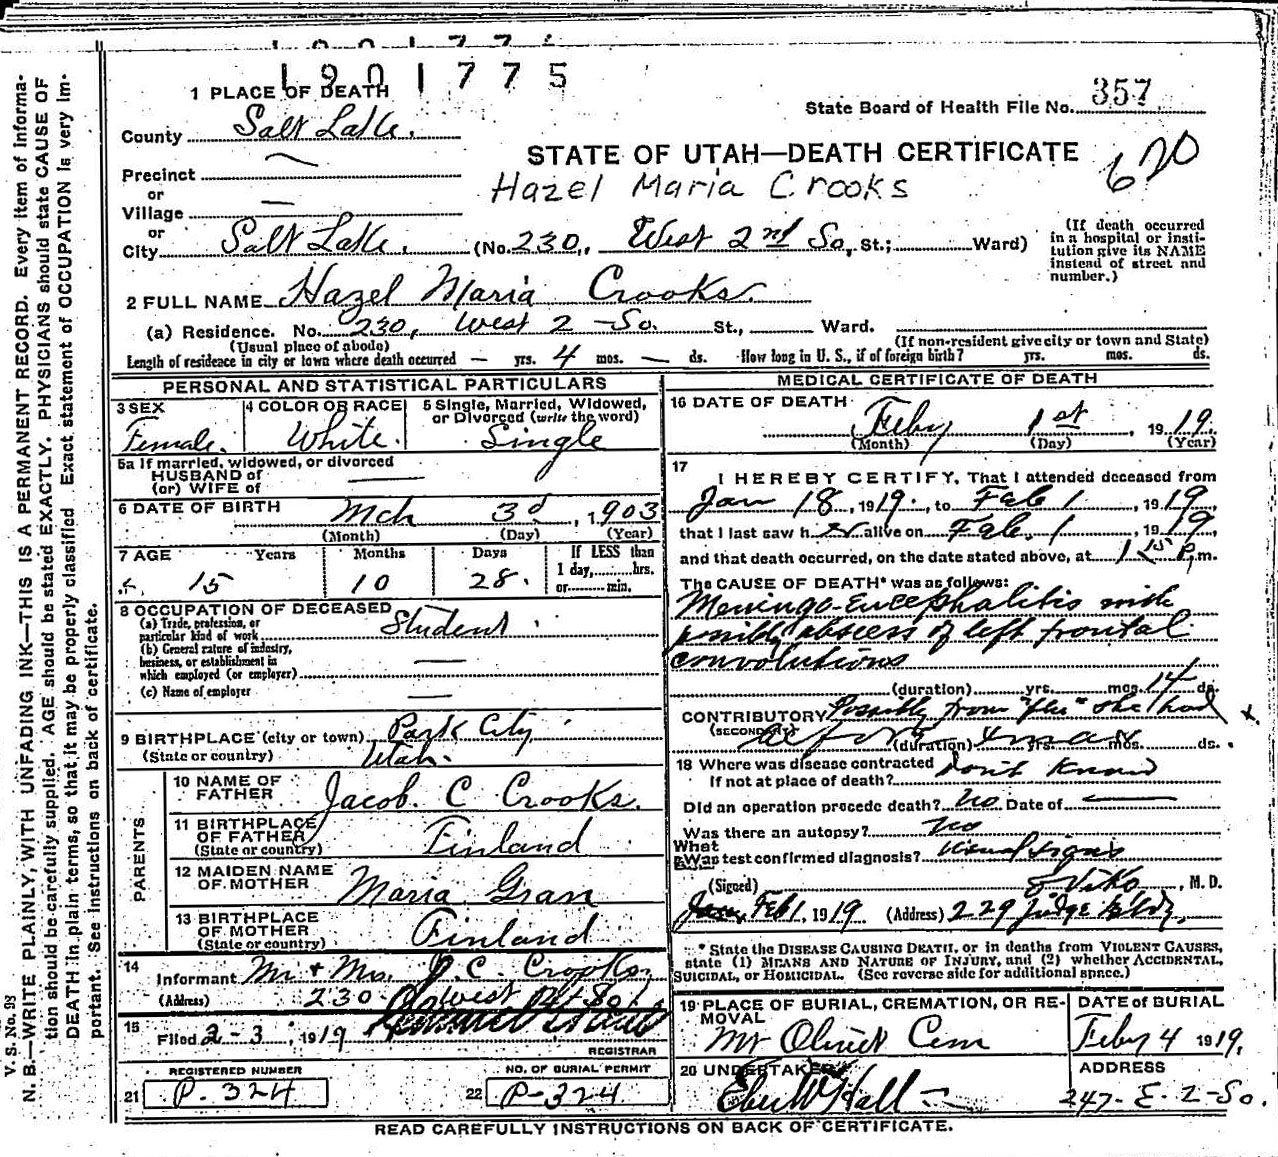 1901775
1 PLACE OF DEATH
State Board of Health File No. 357
County Salt Lake.
STATE OF UTAH—DEATH CERTIFICATE
620
Precinct —
Hazel Maria Crooks
or
Village —
or
City Salt Lake. (No. 230, West 2nd So, St.; Ward)
(If death occurred in a hospital or institution give its NAME instead of street and number.)
2 FULL NAME Hazel Maria Crooks.
(a) Residence. No. 230, West 2 - So. St., Ward.
(Usual place of abode)
(If non-resident give city or town and State)
Length of residence in city or town where death occurred — yrs. 4 mos. — ds. How long in U. S., if of foreign birth? yrs. mos. ds.
PERSONAL AND STATISTICAL PARTICULARS
3 SEX
Female.
4 COLOR OR RACE
White.
5 Single, Married, Widowed, or Divorced (write the word)
Single
5a If married, widowed, or divorced
HUSBAND of
(or) WIFE of —
6 DATE OF BIRTH Mch 3d, 1903
(Month) (Day) (Year)
7 AGE Years Months Days If LESS than
15 10 28. 1 day, hrs.
or min.
8 OCCUPATION OF DECEASED
(a) Trade, profession, or particular kind of work Student
(b) General nature of industry, business, or establishment in which employed (or employer) —
(c) Name of employer —
9 BIRTHPLACE (city or town) Park City,
(State or country) Utah.
PARENTS
10 NAME OF FATHER Jacob. C Crooks.
11 BIRTHPLACE OF FATHER (State or country) Finland
12 MAIDEN NAME OF MOTHER Maria Gran
13 BIRTHPLACE OF MOTHER (State or country) Finland
14 Informant Mr + Mrs. J. C. Crooks,
(Address) 230 West 2d So.
15 Filed 2-3, 1919
REGISTRAR
REGISTERED NUMBER
21 P. 324
NO. OF BURIAL PERMIT
22 P-324
MEDICAL CERTIFICATE OF DEATH
16 DATE OF DEATH
Feby 1st, 1919.
(Month) (Day) (Year)
17 I HEREBY CERTIFY, That I attended deceased from
Jan 18, 1919, to Feb 1, 1919,
that I last saw her alive on Feb. 1, 1919
and that death occurred, on the date stated above, at 1 15 P.m.
The CAUSE OF DEATH* was as follows:
Meningo-Encephalitis with
possibly abscess of left frontal
convolutions
(duration) yrs. mos. 14 ds.
CONTRIBUTORY Possibly from "flu" she had
(SECONDARY) before Xmas
(duration) yrs. mos. ds.
18 Where was disease contracted
If not at place of death? Don't know
Did an operation precede death? No Date of —
Was there an autopsy? No
What test confirmed diagnosis? Usual signs
(Signed) E Viko, M. D.
Feb 1, 1919 (Address) 229 Judge Bldg,
* State the DISEASE CAUSING DEATH, or in deaths from VIOLENT CAUSES, state (1) MEANS AND NATURE OF INJURY, and (2) whether ACCIDENTAL, SUICIDAL, or HOMICIDAL. (See reverse side for additional space.)
19 PLACE OF BURIAL, CREMATION, OR REMOVAL
Mt Olivet Cem
DATE of BURIAL
Feby 4 1919.
20 UNDERTAKER
Eber W Hall
ADDRESS
247- E- 2-So.
READ CAREFULLY INSTRUCTIONS ON BACK OF CERTIFICATE.
V. S. No. 98
N. B.—WRITE PLAINLY, WITH UNFADING INK—THIS IS A PERMANENT RECORD. Every item of information should be carefully supplied. AGE should be stated EXACTLY. PHYSICIANS should state CAUSE OF DEATH in plain terms, so that it may be properly classified. Exact statement of OCCUPATION is very important. See instructions on back of certificate.